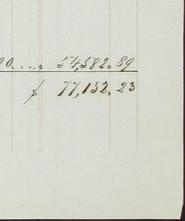 54,582.89
$ 77,132.23